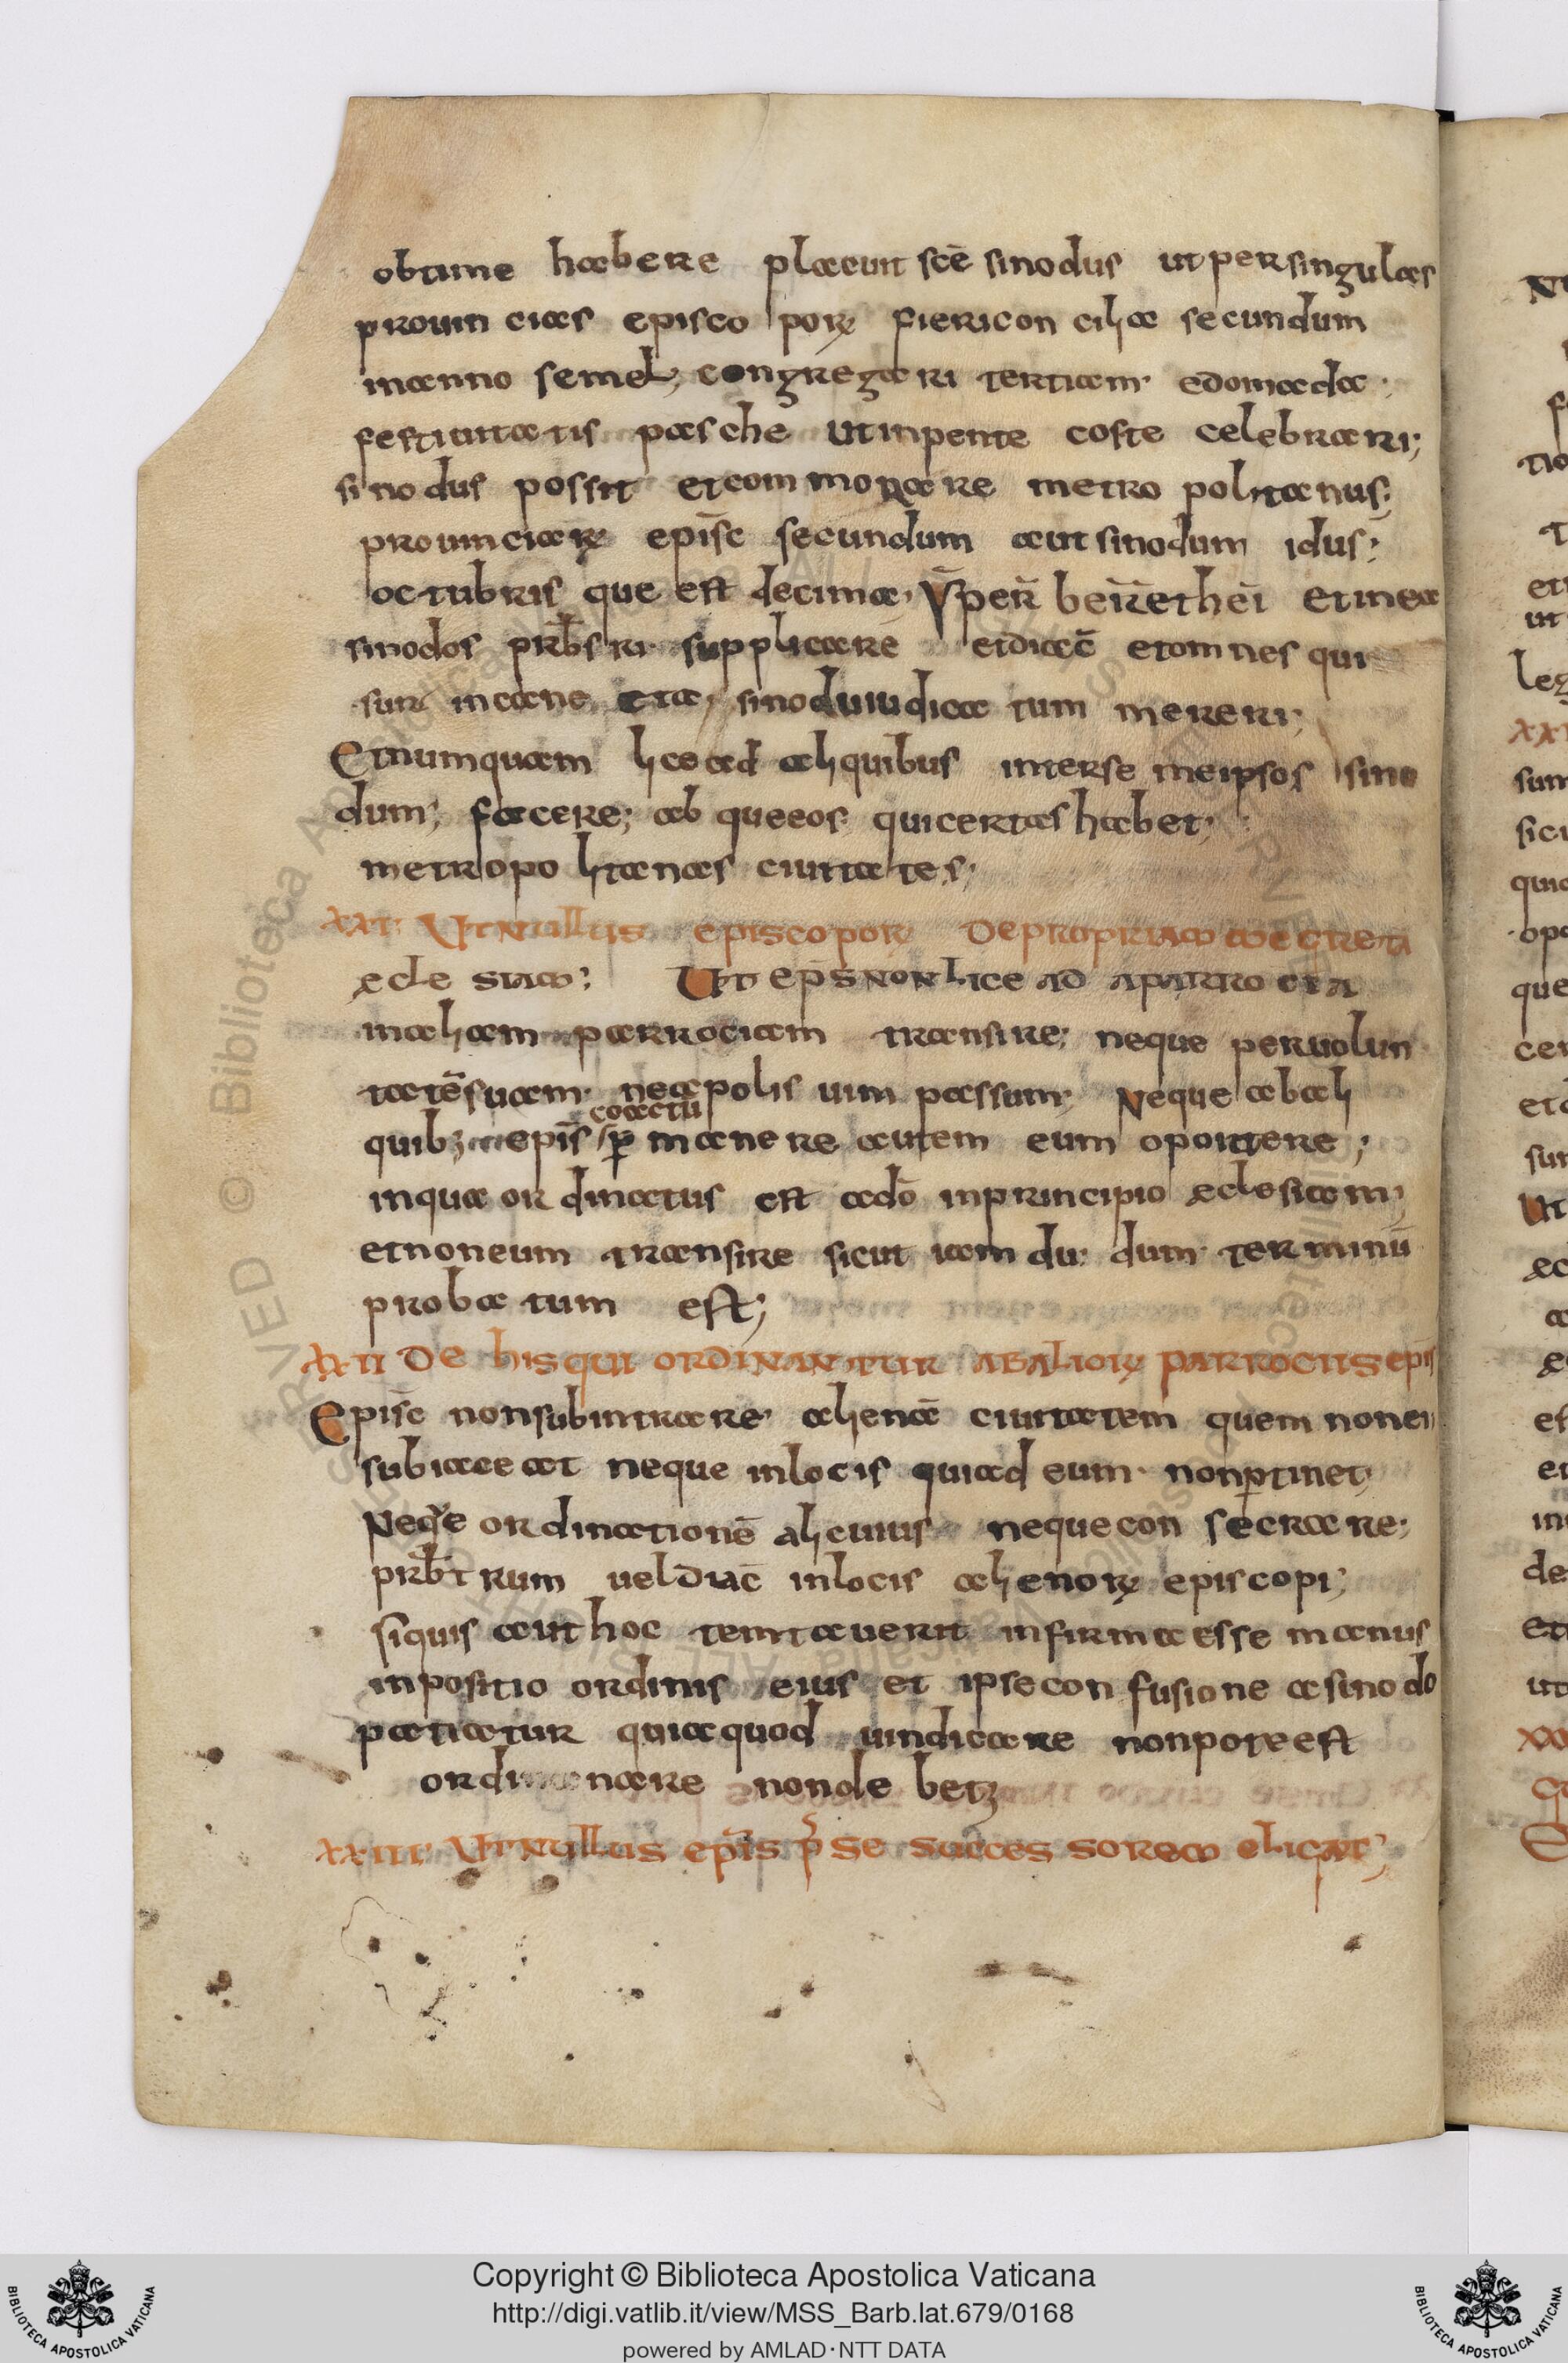 obtime habere placuit scē sinodus ut per singulas
prouin cias episco porꝝ fieri con cilia secundum
in anno semel; congrega ri tertiam· edomada;
festiuita tis pasche ut in pente coste celebra ri;
sino dus possit et com mona re metro politanus;
prouinciarꝝ epis̄c secundum aut sinodum idus;
octubris que est decima; ȳper̄ ber̄ethei et in ea
sinodos prb̄s ri supplicare et diac̄ et om nes qui
et numquam lice ad aliquibus inter se me ipsos sino
dum; facere; ab que eos qui certas habet;
metropo litanas ciuita te s;
xxi Ut nullus episcoporꝝ De propriam
ecle siam; Ut ep̄s non lice ad aparro cia
in aliam parrociam transire; neque per uolun
tatēsuam· nea polis uim passum; Neque ab ali
coactu
quibꝫ epis̄ ꝑ mane re autem eum oportere;
in qua or dinatus est adō in principio eclesiam;
et non eum transire sicut iam du dum terminū
proba tum est;
xxii De his qui ordinantur ab aliorꝝ parrociis epis̄
Epis̄c non subintrare aliena ciuitatem quem non ei
subiace at neque in locis qui ad eum non ꝑtinet;
Neq̄e ordinationē alicuius neque con secra re;
prb̄t rum uel diac̄ in locis alienorꝝ episcopi;
si quis aut hoc temtauerit infirma esse manus
inpositio ordinis eius et ipse con fusione a sinodo
patiatur quia quod uindicare non pote est
ordina nare non de betꝫ
xxiii Ut nullus epis̄ ꝑ se succes sorem elicat;
Copyright © Biblioteca Apostolica Vaticana
http://digi.vatlib.it/view/MSS_Barb.lat.679/0168
powered by AMLAD·NTT DATA
BIBLIOTECA APOSTOLICA VATICANA
BIBLIOTECA APOSTOLICA VATICANA